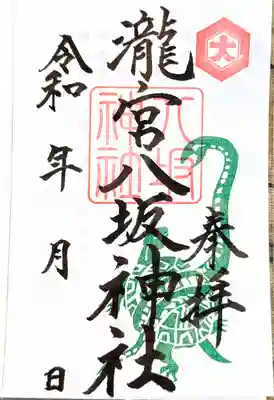 奉拝
瀧宮八坂神社
八坂
神社
令和 年 月 日
大